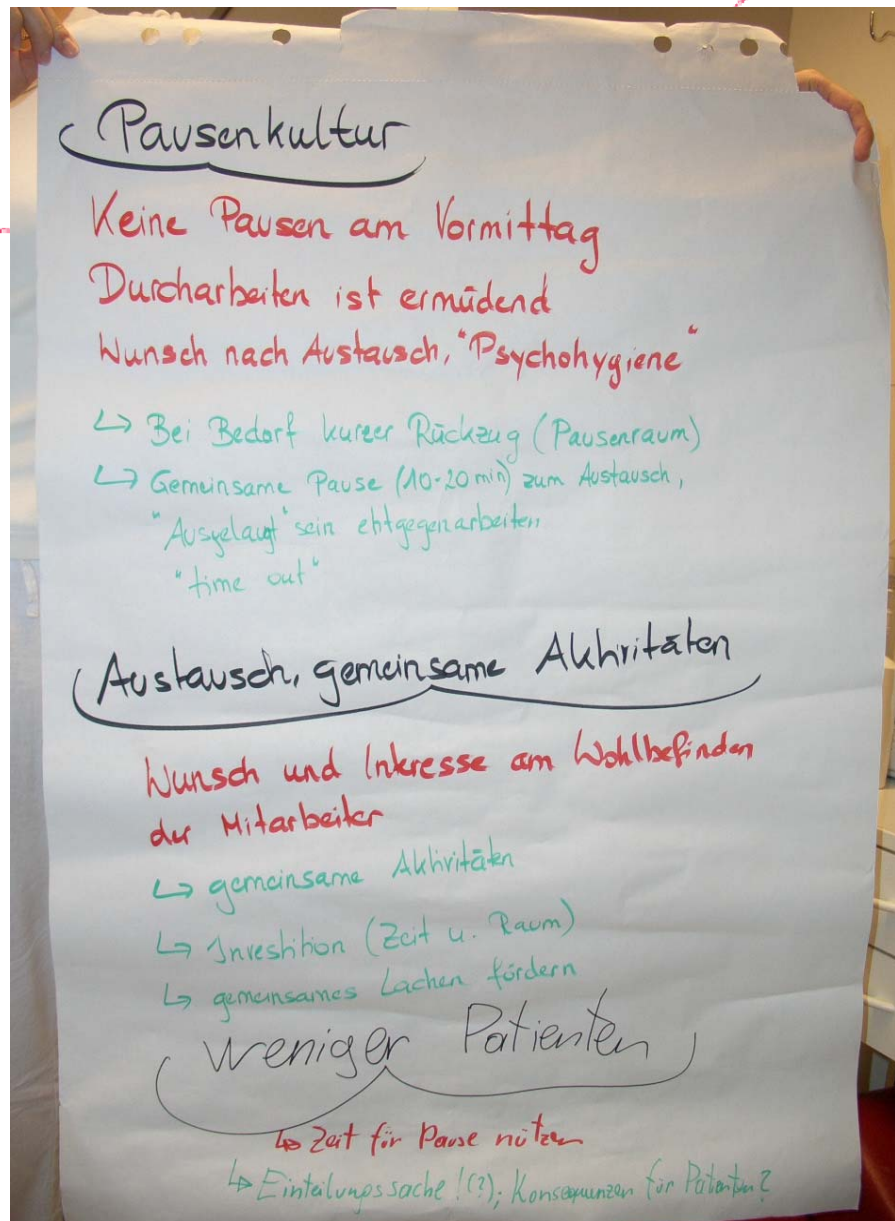 Pausenkultur
Keine Pausen am Vormittag
Durcharbeiten ist ermüdend
Wunsch nach Austausch, "Psychohygiene"
↳ Bei Bedarf kurzer Rückzug (Pausenraum)
↳ Gemeinsame Pause (10-20 min) zum Austausch,
"Ausgelaugt" sein entgegenarbeiten
"time out"
Austausch, gemeinsame Aktivitäten
Wunsch und Interesse am Wohlbefinden
der Mitarbeiter
↳ gemeinsame Aktivitäten
↳ Investition (Zeit u. Raum)
↳ gemeinsames Lachen fördern
weniger Patienten
↳ Zeit für Pause nützen
↳ Einteilungssache !(?); Konsequenzen für Patienten?